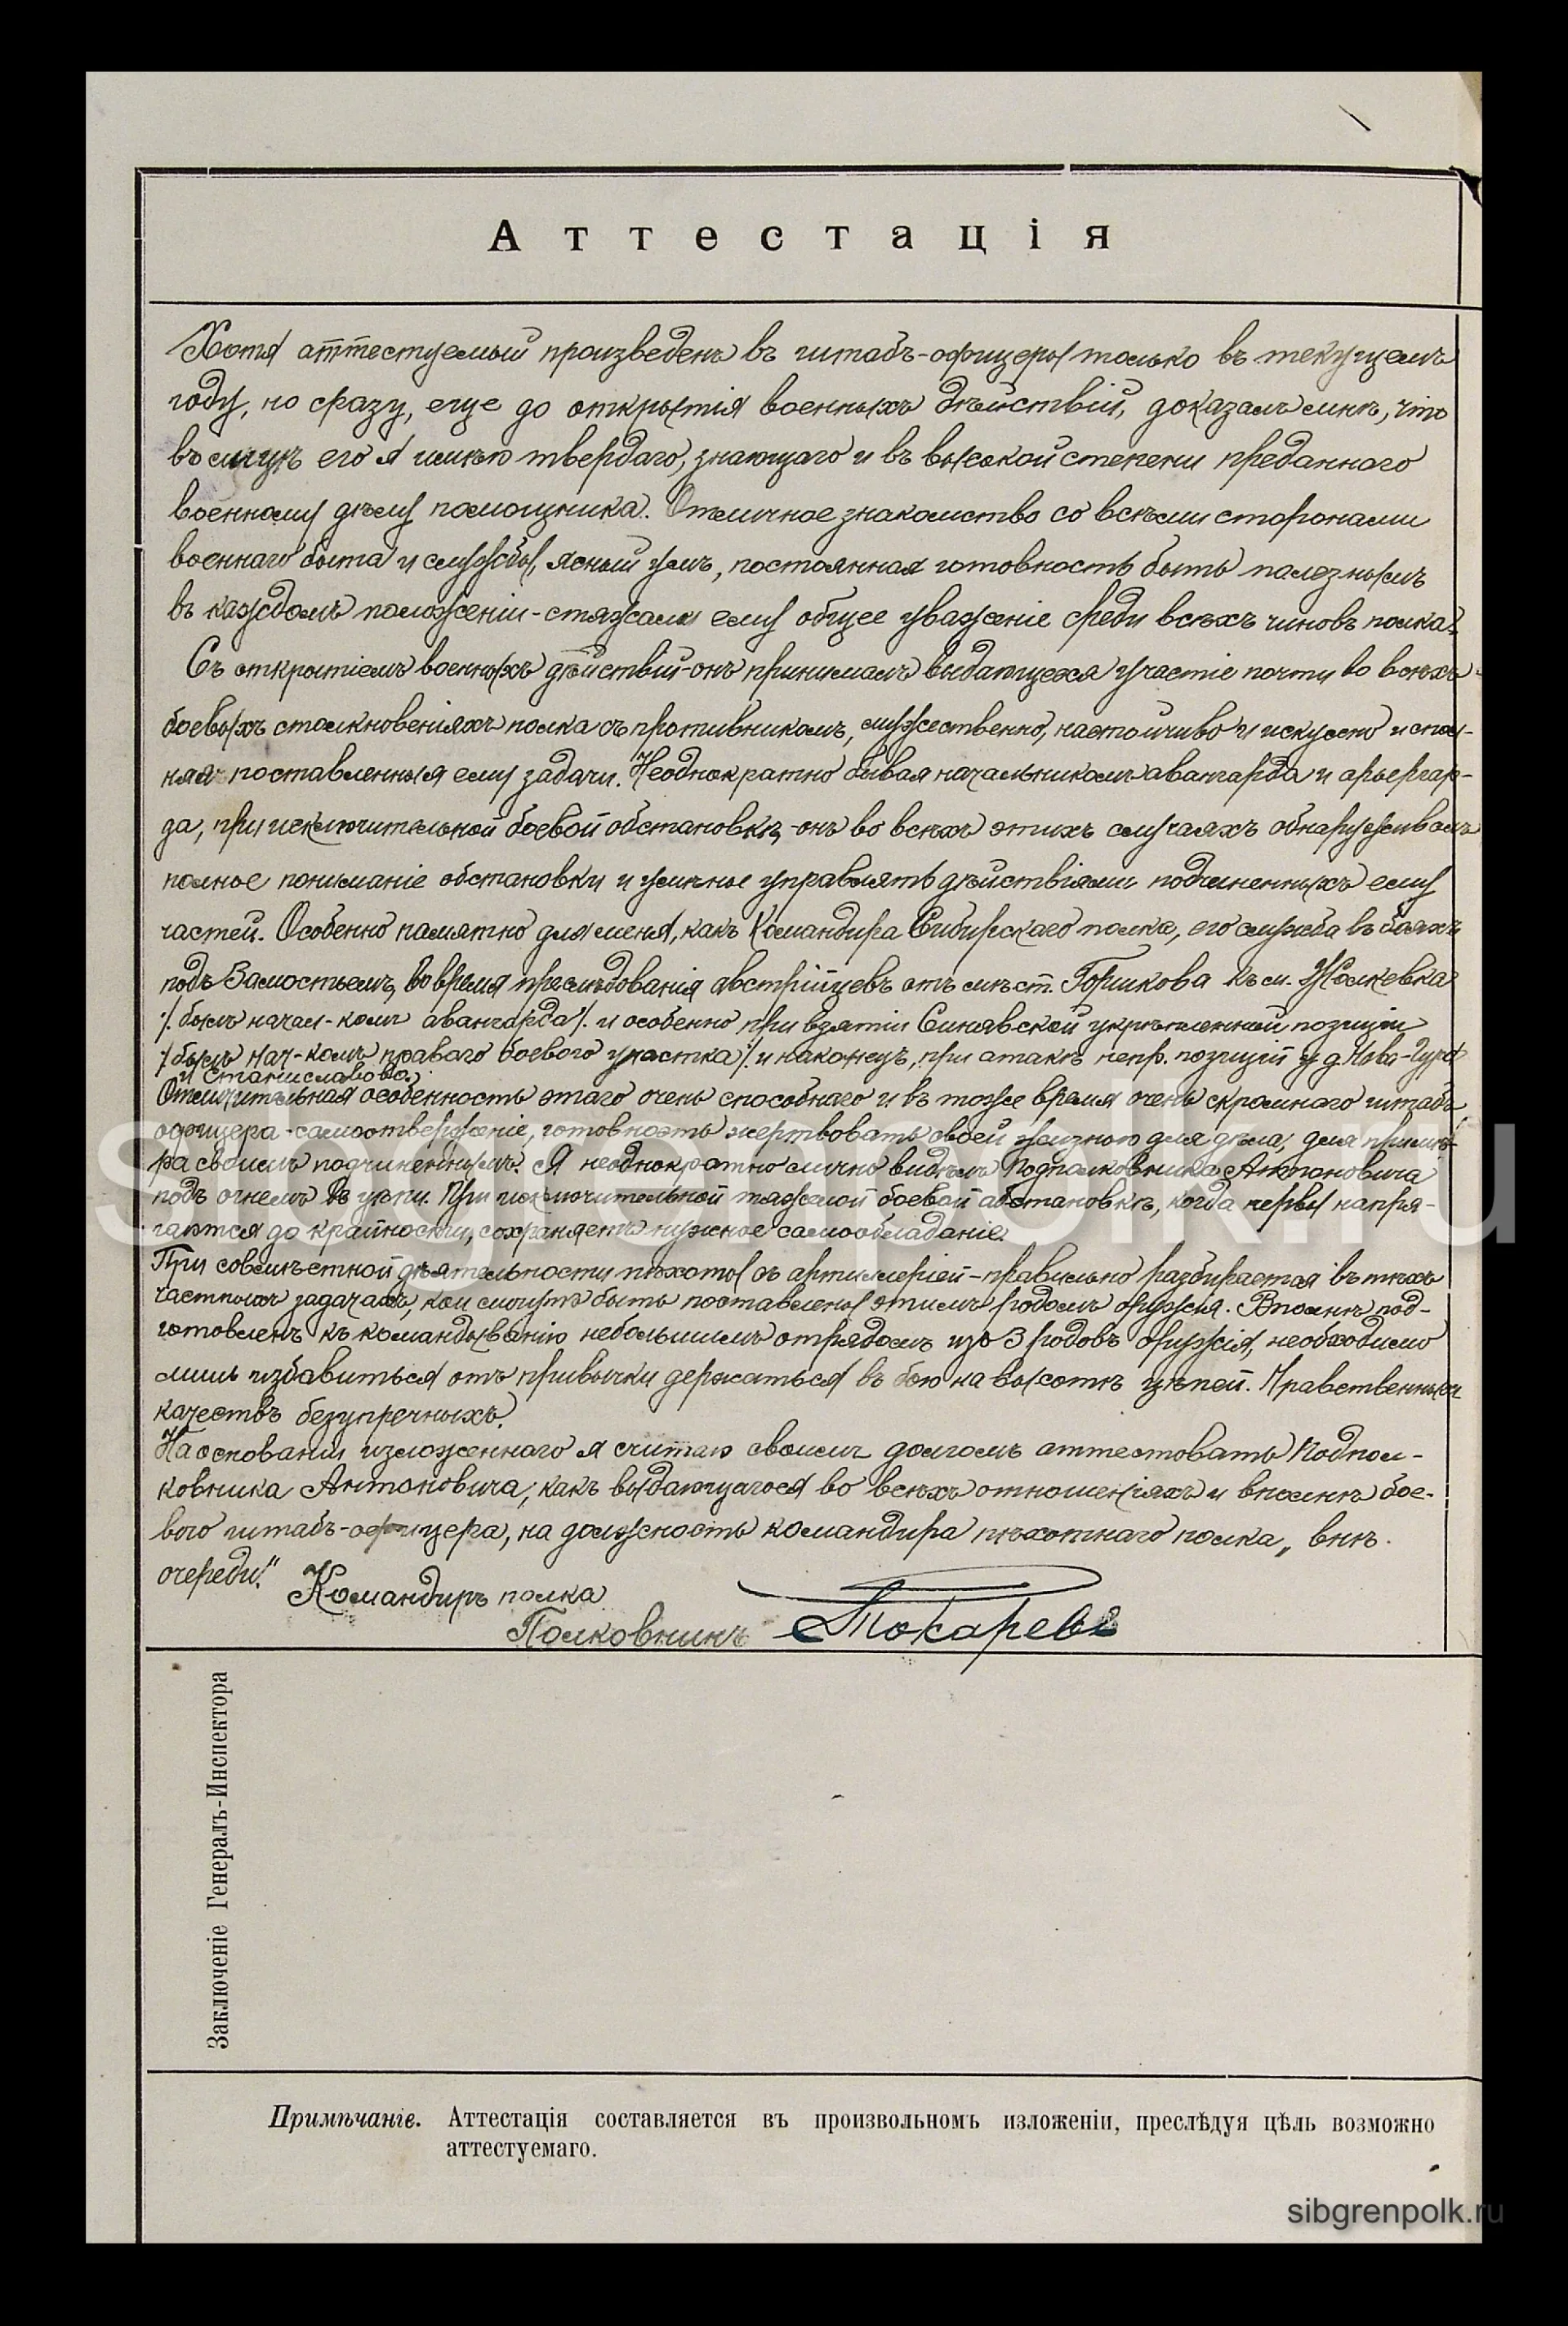 Аттестація
Хотя аттестуемый произведенъ въ штабъ-офицеры только въ текущемъ
году, но сразу, еще до открытія военныхъ дѣйствій, доказалъ мнѣ, что
въ лицѣ его я имѣю твердаго, знающаго и въ высокой степени преданнаго
военному дѣлу помощника. Отличное знакомство со всѣми сторонами
военнаго быта и службы, ясный умъ, постоянная готовность быть полезнымъ
въ каждомъ положеніи-стяжали ему общее уваженіе среди всѣхъ чиновъ полка.
Съ открытіемъ военныхъ дѣйствій-онъ принималъ выдающееся участіе почти во всѣхъ
боевыхъ столкновеніяхъ полка съ противникомъ, мужественно, настойчиво и искусно испол-
няя поставленныя ему задачи. Неоднократно бывая начальникомъ авангарда и арьергар-
да, при исключительной боевой обстановкѣ,-онъ во всѣхъ этихъ случаяхъ обнаруживалъ
полное пониманіе обстановки и умѣнье управлять дѣйствіями подчиненныхъ ему
частей. Особенно памятно для меня, какъ Командира Сибирскаго полка, его служба въ бояхъ
подъ Замостьемъ, во время преслѣдованія австрійцевъ отъ мѣст. Горшкова къ м. Жолкевка
/: былъ начал-комъ авангарда/: и особенно при взятіи Синявской укрѣпленной позиціи
/: былъ нач-комъ праваго боевого участка/: и наконецъ, при атакѣ непр. позицій у д. Нова-Гура
и Станиславово.
Отличительная особенность этаго очень способнаго и въ тоже время очень скромнаго штабъ
офицера-самоотверженіе, готовность жертвовать своей жизнью для дѣла, для примѣ-
ра своимъ подчиненнымъ. Я неоднократно лично видѣлъ Подполковника Антоновича
подъ огнемъ въ цѣпи. При исключительной тяжелой боевой обстановкѣ, когда нервы напря-
гаются до крайности, сохраняетъ нужное самообладаніе.
При совмѣстной дѣятельности пѣхоты съ артиллеріей-правильно разбирается въ тѣхъ
частныхъ задачахъ, кои могутъ быть поставлены этимъ родомъ оружія. Вполнѣ под-
готовленъ къ командыванію небольшимъ отрядомъ изъ 3 родовъ оружія, необходимо
лишь избавиться отъ привычки держаться въ бою на высотѣ цѣпей. Нравственныхъ
качествъ безупречныхъ.
На основаніи изложеннаго я считаю своимъ долгомъ аттестовать Подпол-
ковника Антоновича, какъ выдающагося во всѣхъ отношеніяхъ и вполнѣ бое-
вого штабъ-офицера, на должность командира пѣхотнаго полка „внѣ
очереди."
Командиръ полка
Полковникъ Токаревъ
Заключеніе Генералъ-Инспектора
Примѣчаніе. Аттестація составляется въ произвольномъ изложеніи, преслѣдуя цѣль возможно
аттестуемаго.
sibgrenpolk.ru
sibgrenpolk.ru